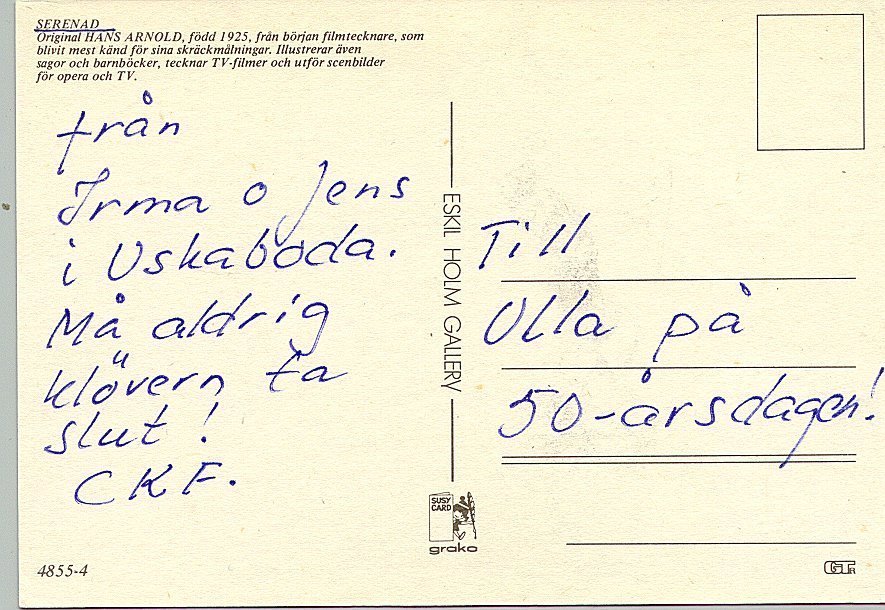 SERENAD
Original HANS ARNOLD, född 1925, från början filmtecknare, som
blivit mest känd för sina skräckmålningar. Illustrerar även
sagor och barnböcker, tecknar TV-filmer och utför scenbilder
för opera och TV.
från
Irma o Jens
i Uskaboda.
Må aldrig
klövern ta
slut!
CKF.
ESKIL HOLM GALLERY
Till
Ulla på
50-årsdagen!
SUSY
CARD
grako
4855-4